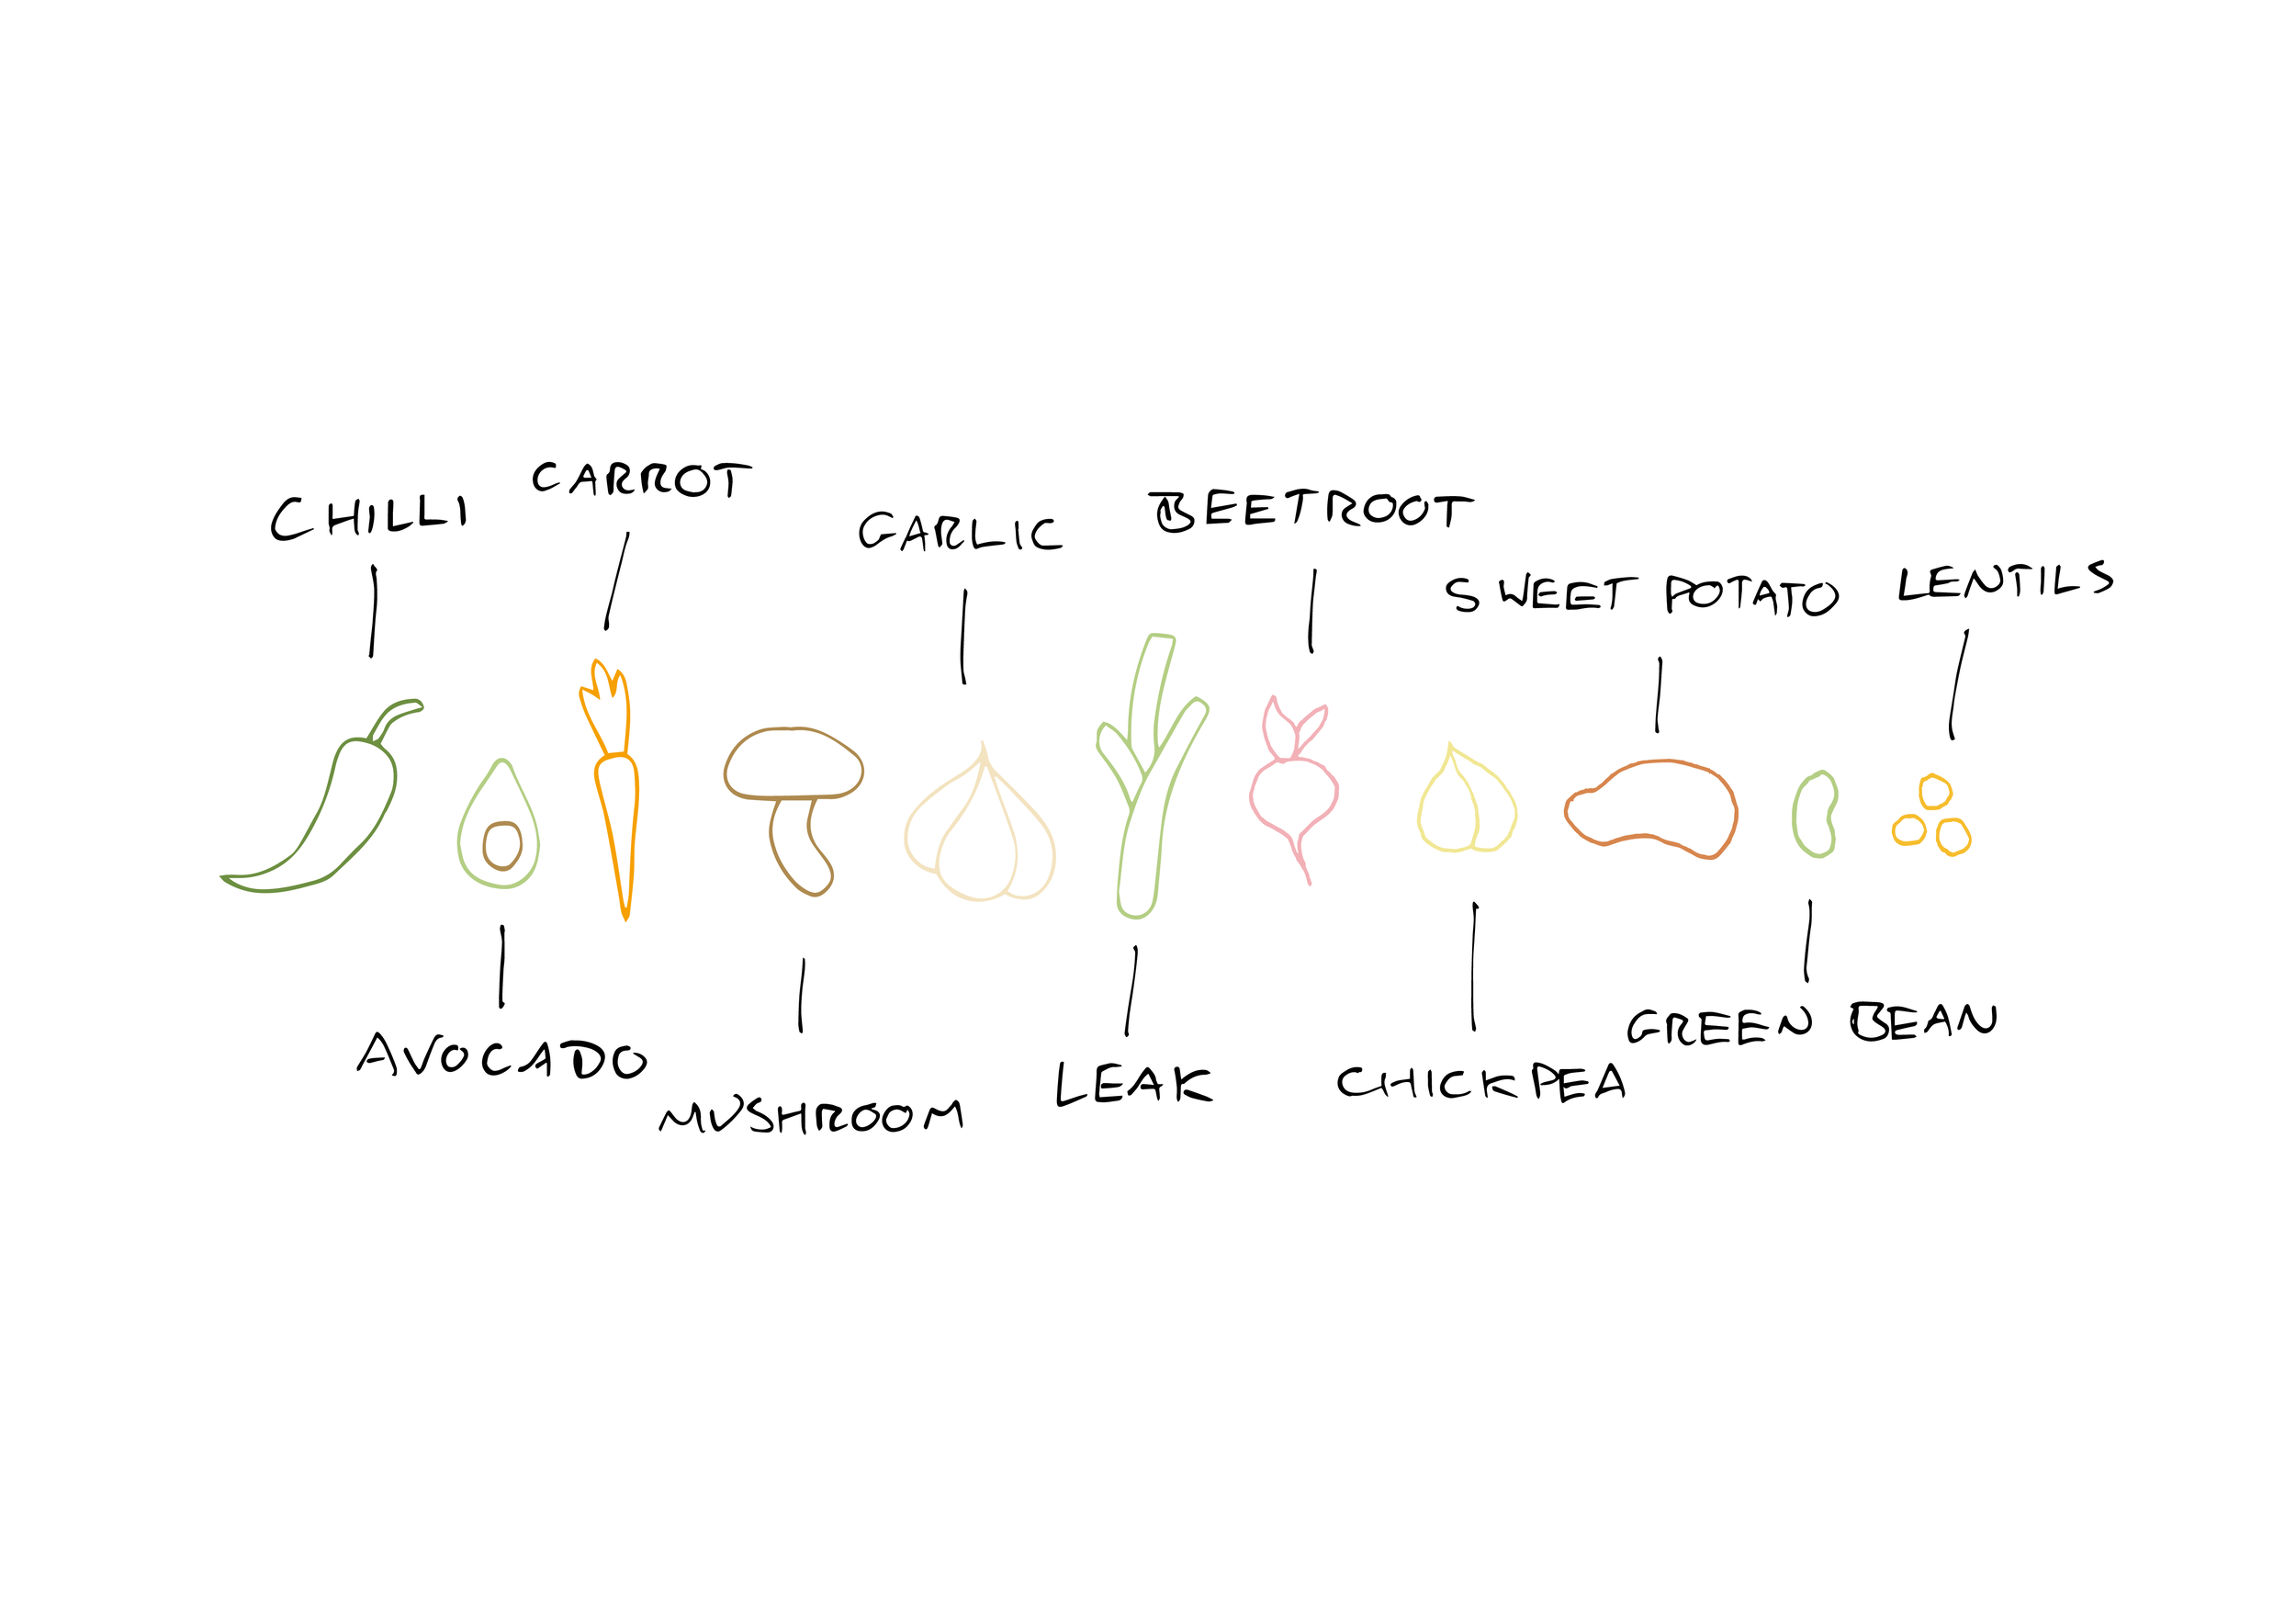 CHILLI
CARROT
GARLIC
BEETROOT
SWEET POTATO
LENTILS
AVOCADO
MUSHROOM
LEAK
CHICKPEA
GREEN BEAN